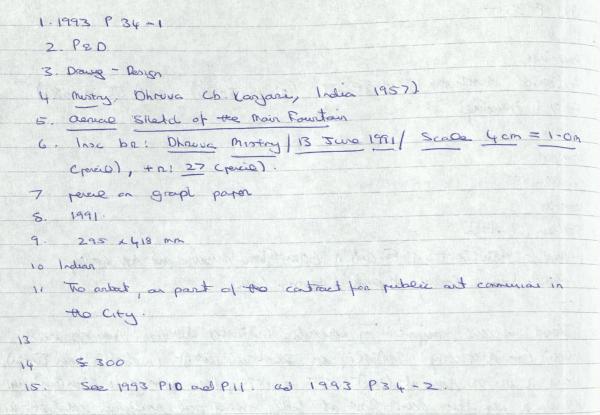 1. 1993 P 34-1
2. P&D
3. Drawg - Design
4 Mistry, Dhruva (b. Kanjari, India 1957)
5. aerial Sketch of the Main Fountain
6. Insc br: Dhruva Mistry / 13 June 1991 / Scale 4cm = 1.0m
(pencil), + r: 27 (pencil).
7 pencil on graph paper
8. 1991.
9. 295 x 418 mm
10 Indian
11 The artist, as part of the contract for public art commission in
the City.
13
14 £ 300
15. See 1993 P10 and P11. and 1993 P34-2.